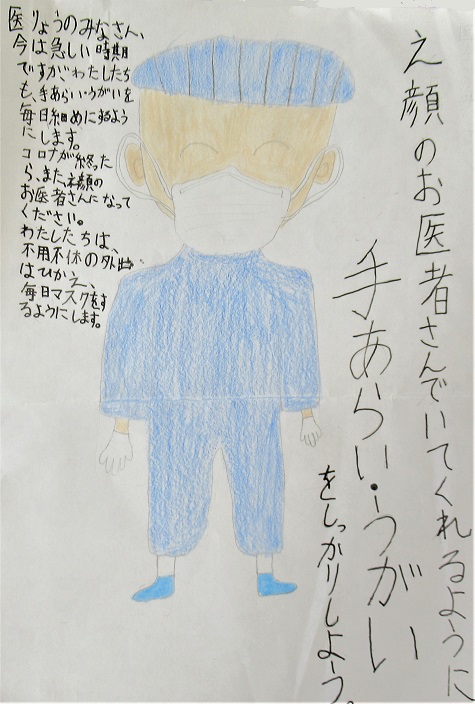 え顔のお医者さんでいてくれるように
手あらい・うがい
をしっかりしよう。
医りょうのみなさん、
今は急しい時期
ですがわたしたち
も、手あらい・うがいを
毎日細めにするよう
にします。
コロナが終った
ら、また、え顔の
お医者さんになって
ください。
わたしたちは、
不用不休の外出
はひかえ、
毎日マスクをす
るようにします。